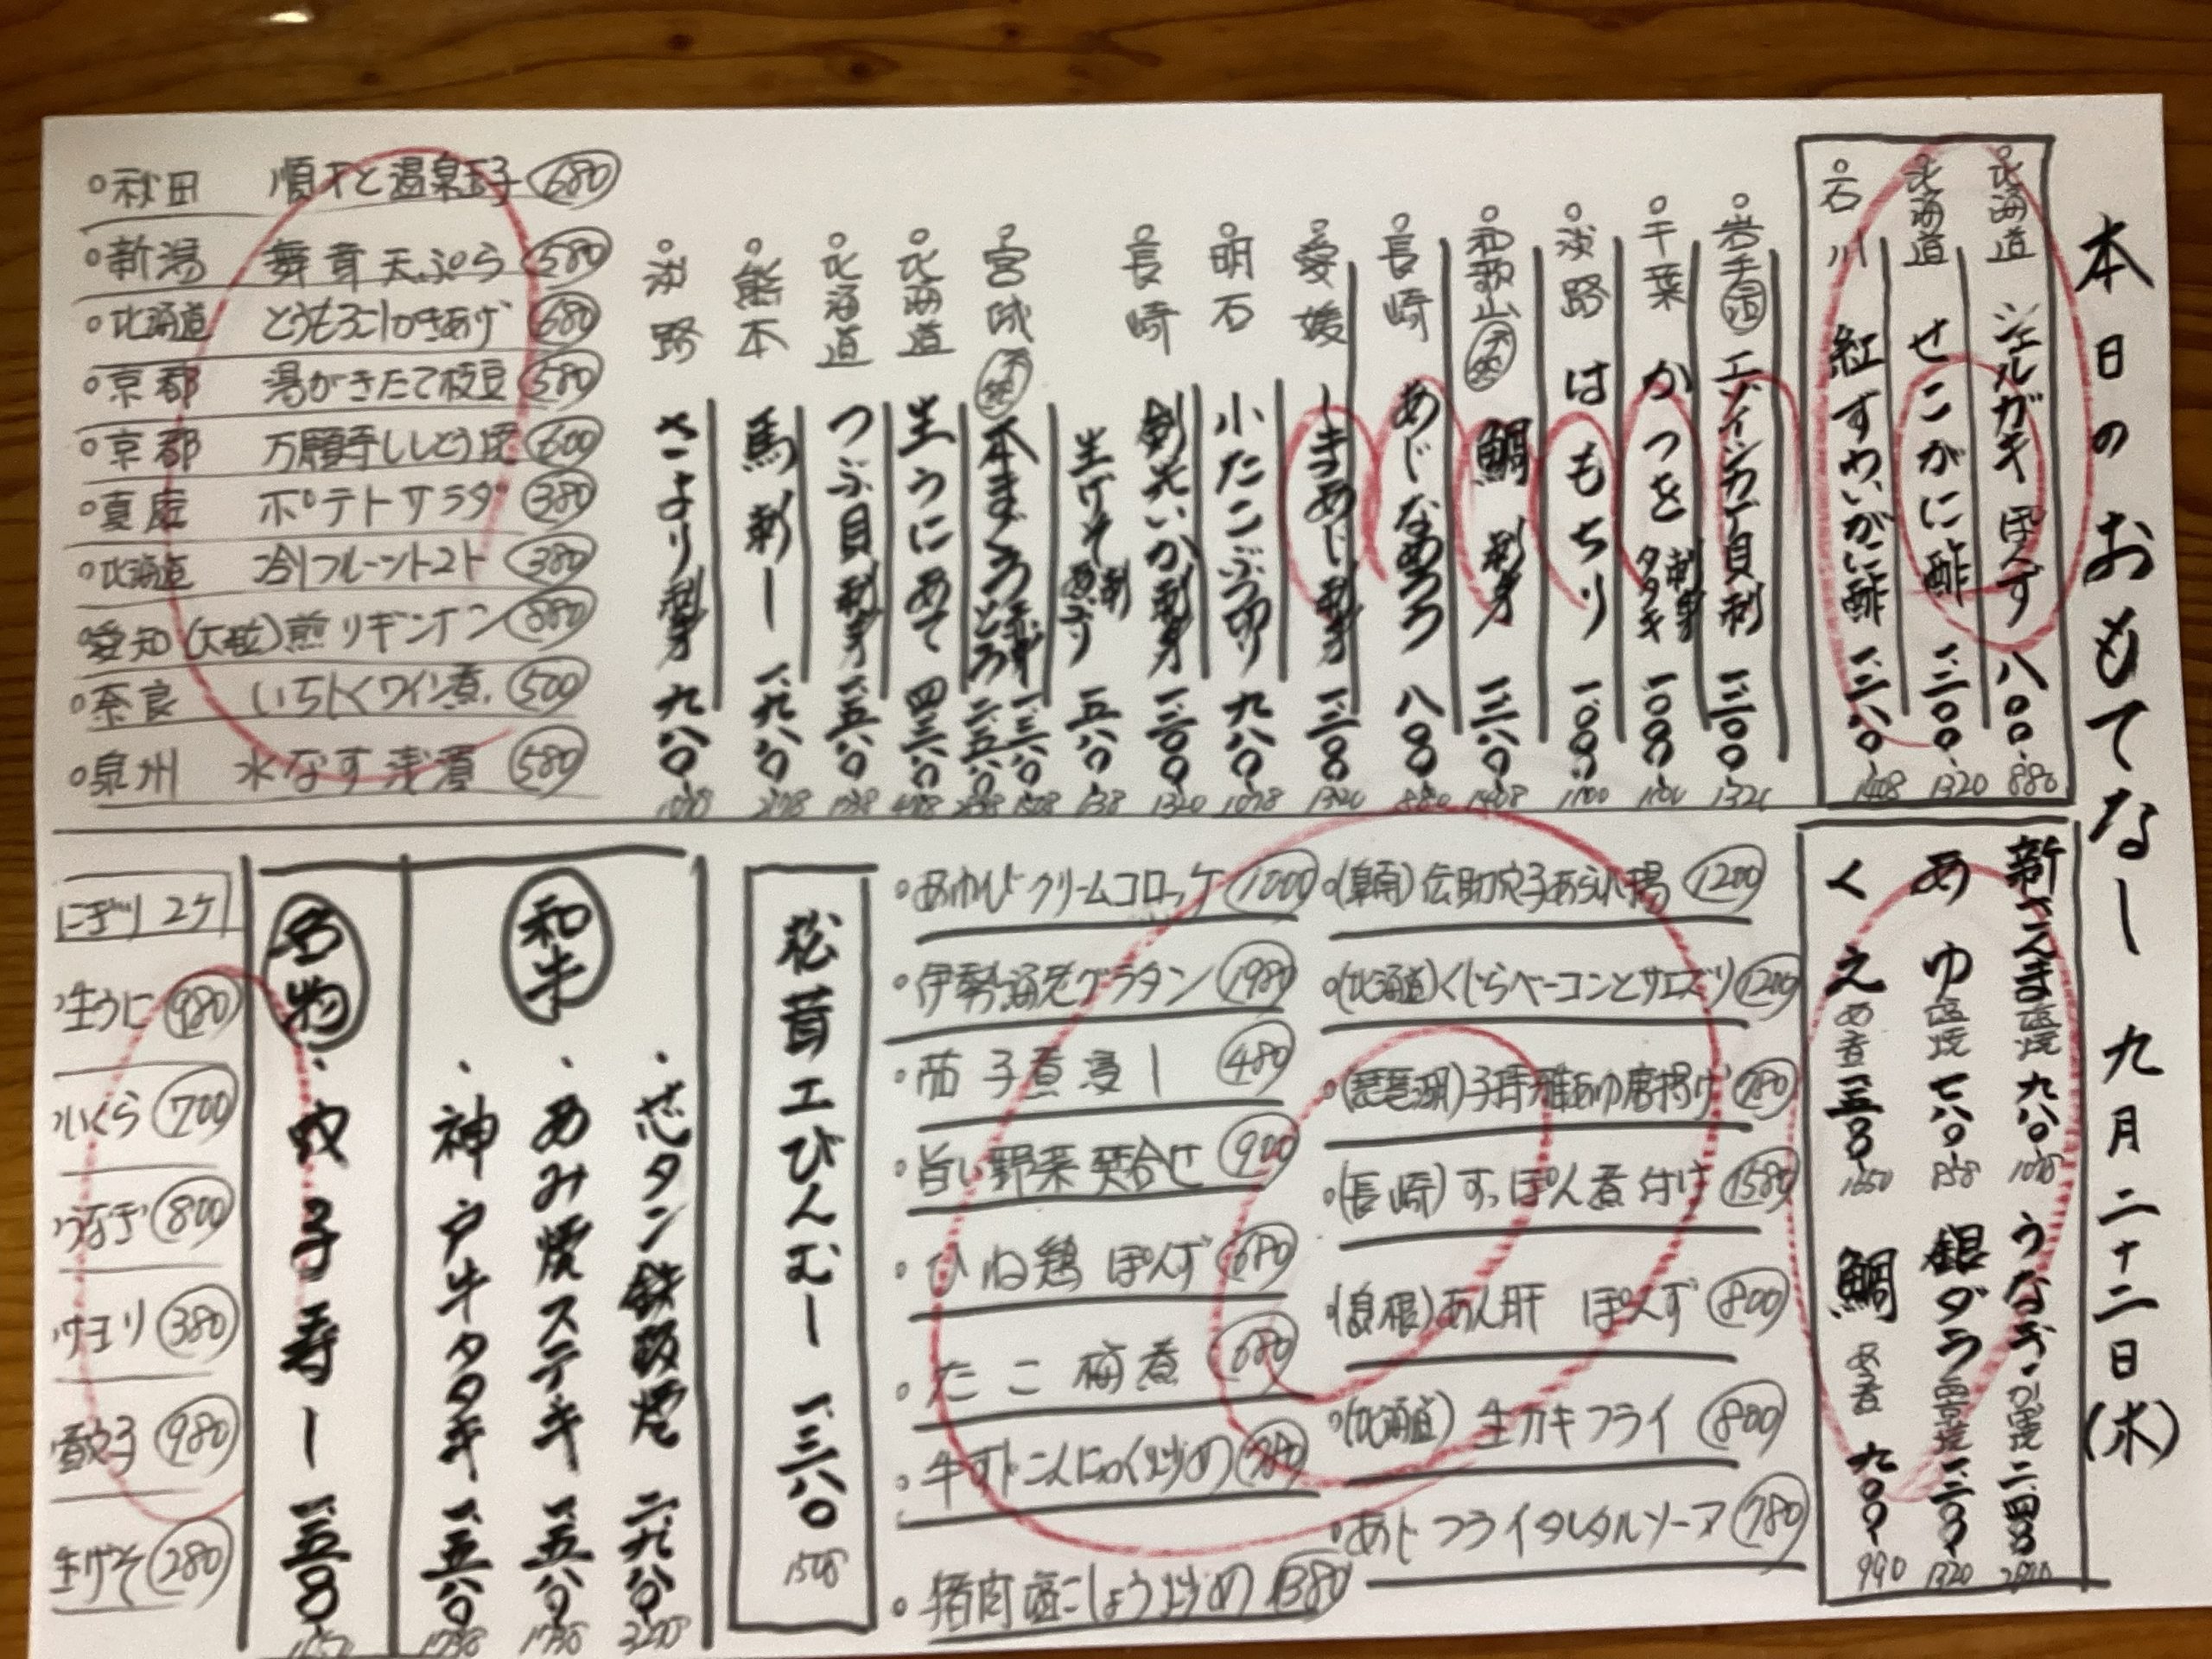 本日のおもてなし 九月二十二日(木)
北海道 シェルガキ ぽんず 八〇〇 880
北海道 せこがに酢 一、二〇〇 1320
石川 紅ずわいがに酢 一、二八〇 1408
岩手 活 エゾイシカゲ貝刺 一、二〇〇
千葉 かつを 刺身 タタキ 一、〇〇〇
淡路 はもちり 一、〇〇〇 1100
和歌山 天然 鯛 刺身 一、二八〇 1408
長崎 あじなめろう 八〇〇 880
愛媛 しまあじ刺身 一、二〇〇
明石 小たこぶつ切り 九八〇 1078
長崎 剣先いか刺身 一、二〇〇 1320
生げそ 刺 あぶり 五八〇 638
宮城 天然 本まぐろ
北海道 生うにあて
北海道 つぶ貝刺身 一、五八〇 1738
熊本 馬刺し 一、九八〇 2178
淡路 さより刺身 九八〇 1078
秋田 順才と温泉玉子 680
新潟 舞茸天ぷら 580
北海道 とうもろこしかきあげ 680
京都 湯がきたて枝豆 580
京都 万願寺ししとう 600
真庭 ポテトサラダ 380
北海道 冷しフルーツトマト 380
愛知 (大粒)煎りギンナン 880
奈良 いちじくワイン煮 500
泉州 水なす浅漬 580
新さんま 塩焼 九八〇 1078
うなぎ かば焼
あゆ 塩焼 七八〇 858
銀ダラ 西京焼 一、二〇〇 1320
くえ あら煮 一、五〇〇 1650
鯛 あら煮 九〇〇 990
(泉南)伝助穴子あられ揚 1200
(北海道)くじらベーコンとサエズリ 1200
(琵琶湖)子持稚あゆ唐揚げ 780
(長崎)すっぽん煮付け 1580
あん肝 ぽんず 800
(北海道)生カキフライ 800
あじフライタルタルソース 780
あわびクリームコロッケ 1000
伊勢海老グラタン 1980
茄子煮浸し 480
旨い野菜炊合せ 900
ひね鶏 ぽんず 680
たこ梅煮 680
牛すじこんにゃく炒め 780
猪肉塩こしょう炒め 1380
松茸土びんむし 一、三八〇 1518
和牛
芯タン鉄板焼 二、九八〇 3278
あみ焼ステーキ 一、五八〇 1738
神戸牛タタキ 一、五八〇 1738
名物
穴子寿し 一、五〇〇
にぎり 2ケ
生うに 980
いくら 700
うなぎ 800
サヨリ 380
980
生げそ 280